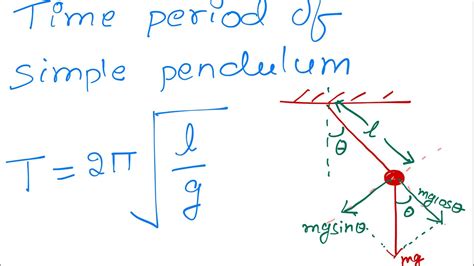 Time period of
simple pendulum
T = 2π √(l/g)
θ
l
mg sinθ
θ
mg cosθ
mg